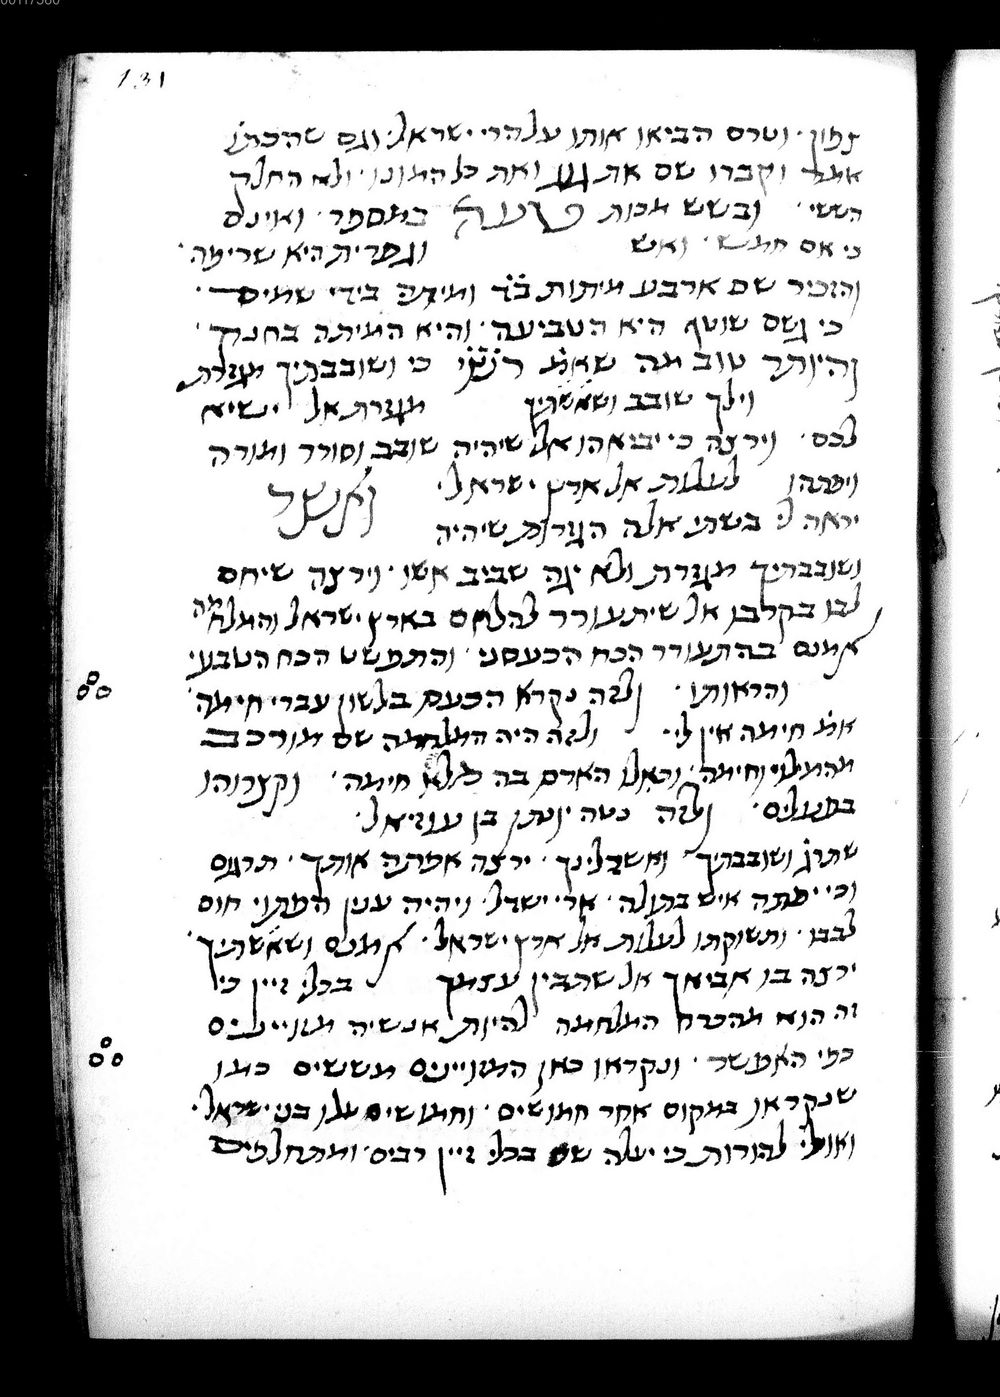 131
המון· וטרם הביאו אותו על הרי ישראל· וגם שהכתו׳
אמר וקברו שם את גוג ואת כל המונו· ולא החלק
הששי· ובשש מכות במספר· ואינם
כי אם חמש· ואש וגפרית היא שרימה·
והזכיר שם ארבע מיתות ב״ד ומיתה בידי שמים·
כי גשם שוטף היא הטביעה· והיא המיתה בחנק·
והיותר טוב מה שאמ׳ כי ושובבתיך מגזרת
וילך שובב וששאתיך מגזרת אל ישיא
לכם· וירצה כי יביאהו אל שיהיה שובב וסורר ומורה
ויפתהו לעלות אל ארץ ישראל· ואפשר
יראה לי בשתי אלה הגזרות שיהיה
ושובבתיך מגזרת ולא יגה שביב אשו· וירצה שיחם
לבו בקרבו אל שיתעורר להלחם בארץ ישראל והמלחמה
אמנם בהתעורר הכח הכעסני· והתפשט הכח הטבעי
והראותו· ולזה נקרא הכעס בלשון עברי חימה·
אמ׳ חימה אין לי· ולזה היה המלחמה שם מורכב
וחימה· וכאלו האדם בה כלא חימה· וקצרוהו
בפעלים· ולזה נטה יונתן בן עוזיאל·
שתרג׳ ושובבתיך ואשדלינך· ירצה אפתה אותך· תרגום
וכי יפתה איש בתולה· ארי ישדל· ויהיה ענין הפתוי חום
לבבו· ותשוקתו לעלות אל ארץ ישראל· אמנם וששאתיך·
ירצה בו אביאך אל שתבין עצמך בכלי זיין כי
זה הוא מהכרח המלחמה להיות אנשיה מזויינים
כפי האפשר· ונקראו כאן המזויינים מששים כמו
שנקראו במקום אחר חמושים· וחמושים עלו בני ישראל·
ואולי להורות כי יעלה שם בכלי זיין רבים·